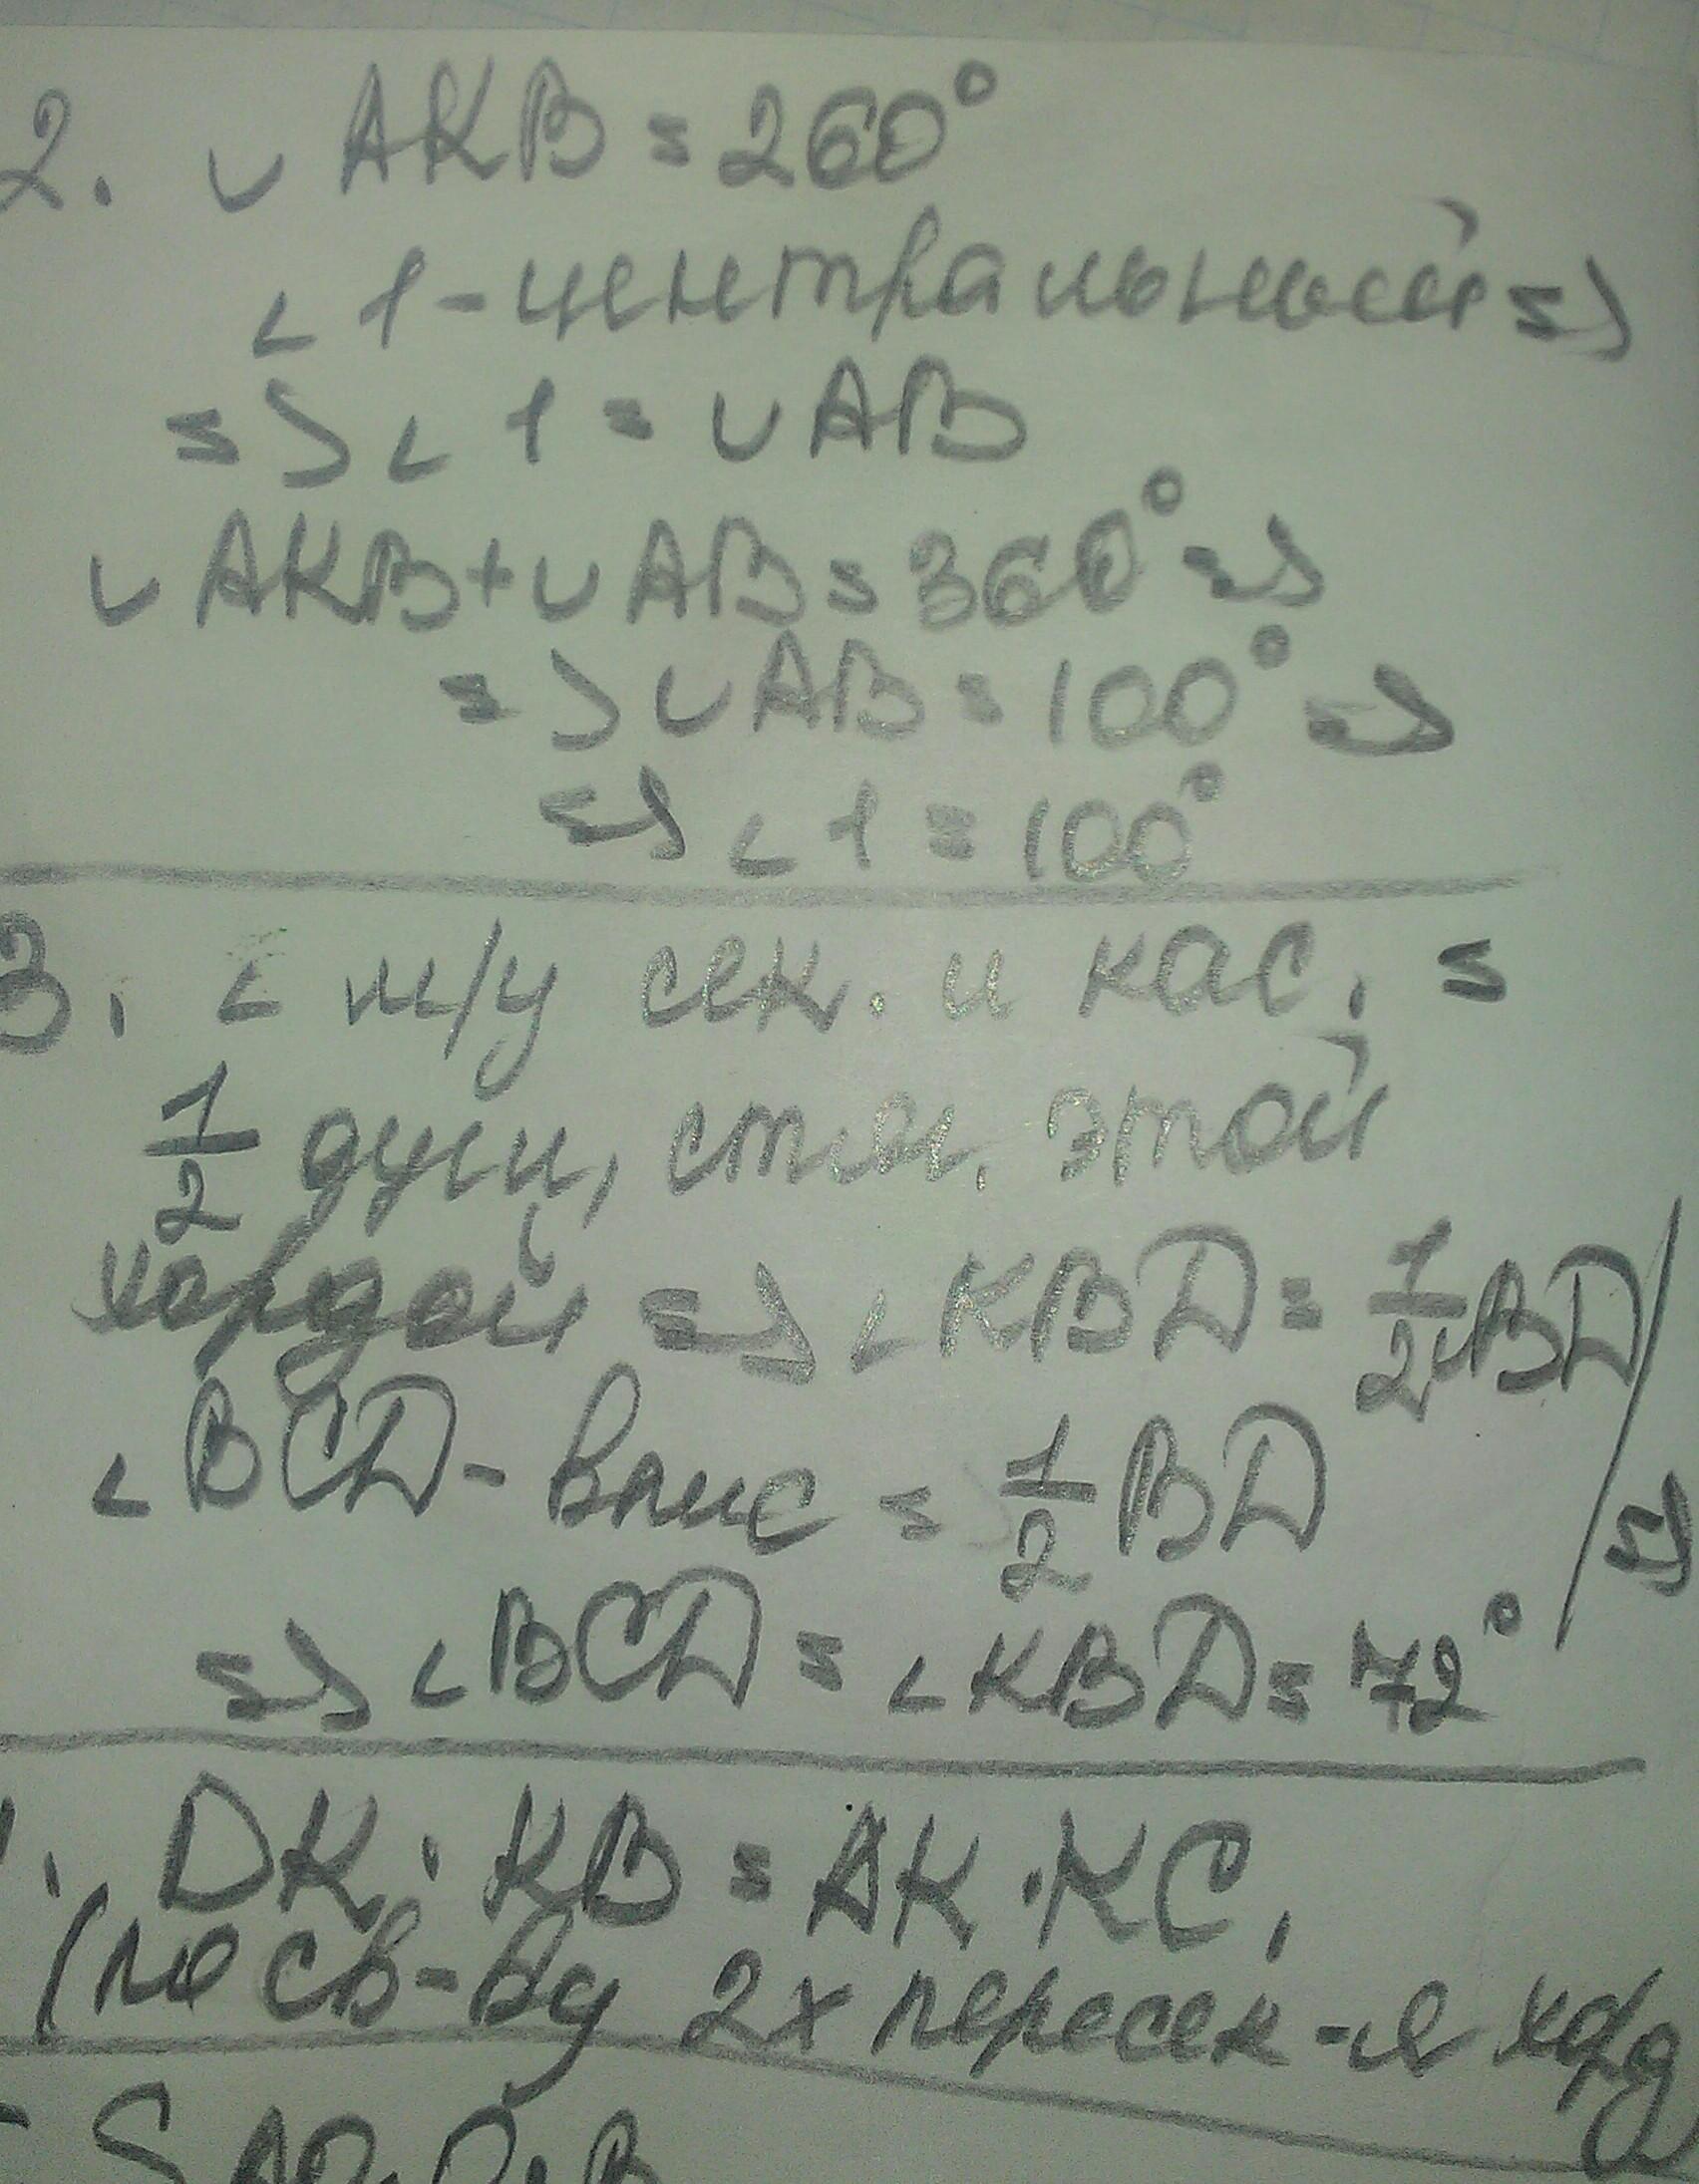 2. ∪ AKB = 260°
∠ 1 - центральный =>
=> ∠ 1 = ∪AB
∪ AKB + ∪ AB = 360° =>
=> ∪ AB = 100° =>
=> ∠ 1 = 100°
3. ∠ м/у сек. и кас. =
1/2 дуги, стяг. этой
хордой => ∠ KBD = 1/2 ∪BD
∠ BCD - впис = 1/2 BD =>
=> ∠ BCD = ∠ KBD = 72°
DK · KB = AK · KC,
(по св-ву 2х пересек-я хорд